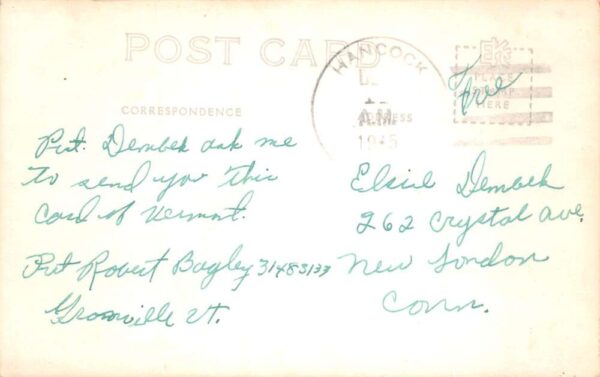 POST CARD
CORRESPONDENCE
HANCOCK
A.M.
1945
EKC
PLACE
HERE
Free
Pvt. Dembek ask me
to send you this
Card of Vermont.
Pvt Robert Bagley 31483133
Granville Vt.
Elsie Dembek
262 Crystal Ave.
New London
Conn.